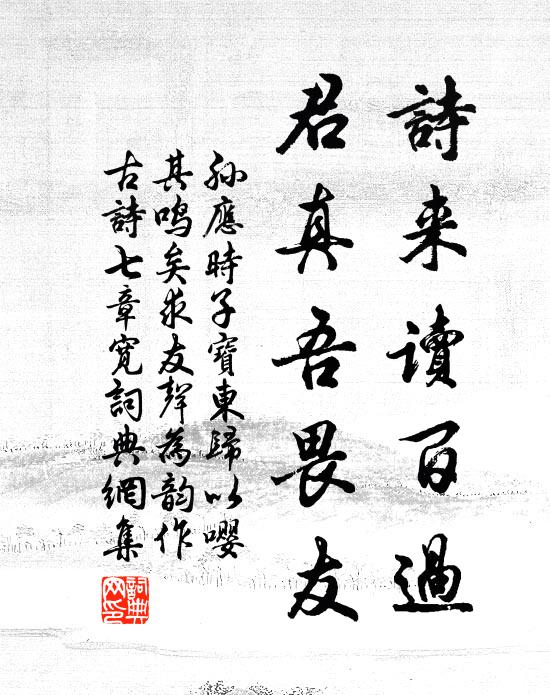 詩来讀百過
君真吾畏友
孫應時子寶東歸以嚶
其鳴矣求友聲為韵作
古詩七章寬詞典網集
詞典网印